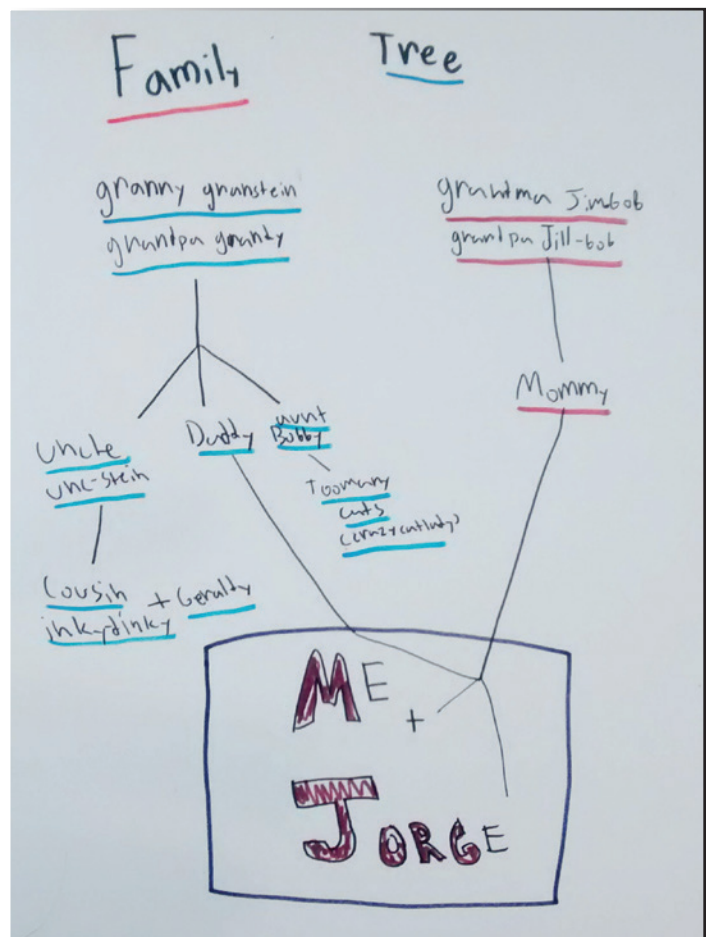 Family Tree
granny granstein
grandpa grandy
grandma Jimbob
grandpa Jill-bob
Mommy
Uncle
unc-stein
Daddy
aunt
Bobby
Toomany
cats
(crazycatlady)
Cousin
inkydinky + Geraldy
ME
+
JORGE